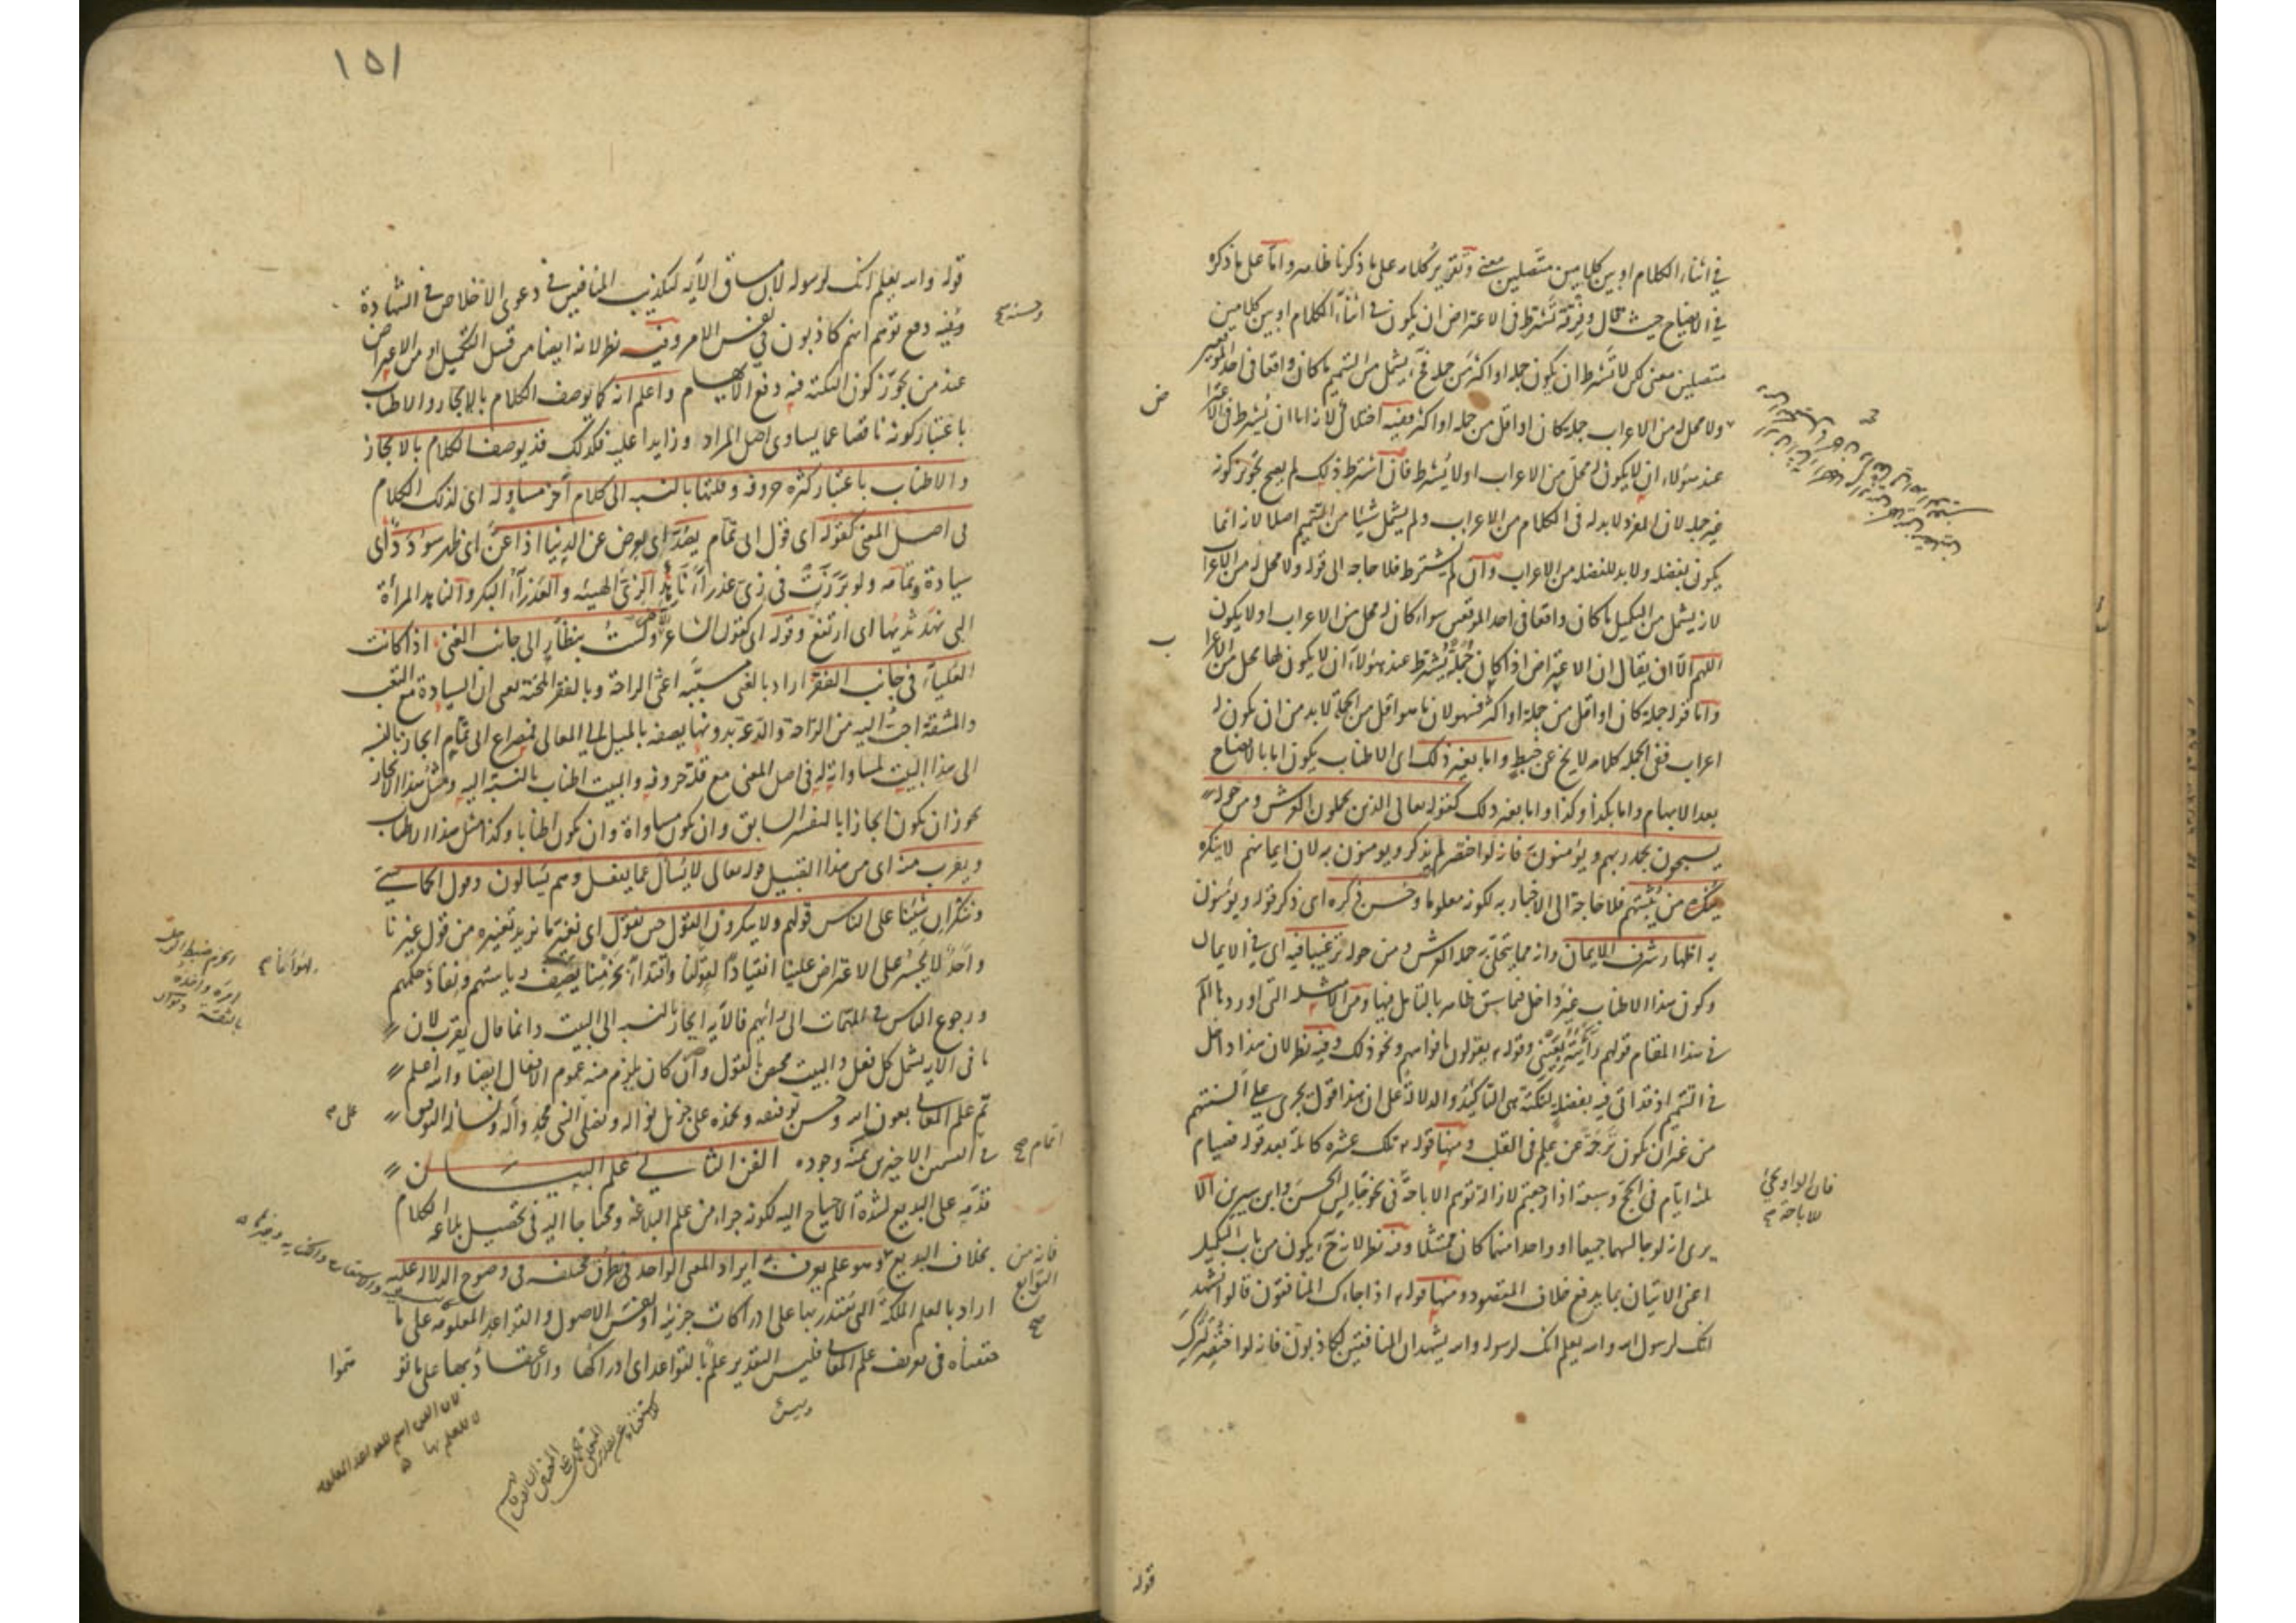 في اثناء الكلام او بين كلامين متصلين معنى وتقرير كلامه على ما ذكرنا ظاهر واما على ما ذكره
في الايضاح حيث قال وفرقة تشترط في الاعتراض ان يكون في اثناء الكلام او بين كلامين
متصلين معنى لكن لا تشترط ان يكون جملة او اكثر من جملة فح يشمل من التتميم ما كان واقعا في احد الموقعين
ولا محل له من الاعراب جملة كان او اقل من جملة او اكثر ففيه اختلال لانه اما ان يشترط في الاعتراض
عند هؤلاء ان لا يكون له محل من الاعراب او لا يشترط فان اشترط ذلك لم يصح تجويز كونه
غير جملة لان المفرد لابد له في الكلام من الاعراب ولم يشمل شيئا من التتميم اصلا لانه انما
يكون بفضلة ولابد للفضلة من الاعراب وان لم يشترط فلا حاجة الى قوله ولا محل له من الاعراب
لانه يشمل من التكميل ما كان واقعا في احد الموقعين سواء كان له محل من الاعراب او لا يكون
اللهم الا ان يقال ان الاعتراض اذا كان جملة يشترط عند هؤلاء ان لا يكون لها محل من الاعراب
واما قوله جملة كان او اقل من جملة او اكثر فسهو لان ما هو اقل من الجملة لابد من ان يكون له
اعراب ففي الجملة كلامه لا يخ عن خبط واما بغير ذلك اى الاطناب يكون اما بالايضاح
بعد الابهام واما بكذا وكذا واما بغير ذلك كقوله تعالى الذين يحملون العرش ومن حوله
يسبحون بحمد ربهم ويؤمنون به فانه لو اختصر لم يذكر ويومنون به لان ايمانهم لا ينكره
من يثبتهم فلا حاجة الى الاخبار به لكونه معلوما وحسن ذكره اى ذكر قوله ويؤمنون
به اظهار شرف الايمان وانه مما يتحلى به حملة العرش ومن حوله ترغيبا فيه اى في الايمان
وكون هذا الاطناب غير داخل فيما سبق ظاهر بالتامل فيها ومن الامثلة التى اوردها المص
في هذا المقام قولهم رأيته بعيني وقوله يقولون بافواههم ونحو ذلك وفيه نظر لان هذا داخل
في التتميم اذ قد اتى فيه بفضلة لنكتة هى التاكيد والدلالة على ان هذا قول يجرى على السنتهم
من غير ان يكون ترجمة عن علم في القلب ومنها قوله تلك عشرة كاملة بعد قوله فصيام
ثلثة ايام في الحج وسبعة اذا رجعتم لازالة توهم الاباحة في نحو جالس الحسن وابن سيرين الا
يرى انه لو جالسهما جميعا او واحدا منهما كان ممتثلا وفيه نظر لانه ح يكون من باب التكميل
اعنى الاتيان بما يدفع خلاف المقصود ومنها قوله اذا جاءك المنافقون قالوا نشهد
انك لرسول الله والله يعلم انك لرسوله والله يشهد ان المنافقين لكاذبون فانه لو اختصر لترك
فان الواو تجئ
للاباحة
قوله
١٥١
قوله والله يعلم انك لرسوله لان مساق الآية لتكذيب المنافقين في دعوى الاخلاص في الشهادة
وفيه دفع توهم انهم كاذبون في نفس الامر وفيه نظر لانه ايضا من قبيل التكميل او من الاعتراض
عند من يجوز كون النكتة فيه دفع الايهام واعلم انه كما يوصف الكلام بالايجاز والاطناب
باعتبار كونه ناقصا عما يساوى اصل المراد او زايدا عليه فكذلك قد يوصف الكلام بالايجاز
والاطناب باعتبار كثرة حروفه وقلتها بالنسبة الى كلام آخر مساو له اى لذلك الكلام
في اصل المعنى كقوله اى قول ابى تمام يصد اى يعرض عن الدنيا اذا عن اى ظهر سودد اى
سيادة وتمامه ولو برزت في زى عذراء ناهد الزى الهيئة والعذراء البكر والناهد المرأة
التى نهد ثديها اى ارتفع وقوله اى كقول الشاعر ولست بنظار الى جانب الغنى اذا كانت
العلياء في جانب الفقر اراد بالغنى مسببه اعنى الراحة وبالفقر المحنة يعنى ان السيادة مع التعب
والمشقة احب اليه من الراحة والدعة بدونها يصفه بالميل الى المعالى فمصراع ابى تمام ايجاز بالنسبة
الى هذا البيت لمساواته له في اصل المعنى مع قلة حروفه والبيت اطناب بالنسبة اليه ومثل هذا الايجاز
يجوز ان يكون ايجازا بالتفسير السابق وان يكون مساواة وان يكون اطنابا وكذا مثل هذا الاطناب
ويقرب منه اى من هذا القبيل قوله تعالى لا يسأل عما يفعل وهم يسألون وقول الحماسى
وننكر ان شئنا على الناس قولهم ولا ينكرون القول حين نقول اى نغير ما نريد تغييره من قول غيرنا
واحد لا يجسر على الاعتراض علينا انقيادا لقولنا واقتداء بحزمنا يصف رياستهم ونفاذ حكمهم
ورجوع الناس في المهمات الى رأيهم فالآية ايجاز بالنسبة الى البيت وانما قال يقرب لان
ما في الآية يشمل كل فعل والبيت مختص بالقول وان كان يلزم منه عموم الافعال ايضا والله اعلم
تم علم المعانى بعون الله وحسن توفيقه ونحمده على جزيل نواله ونصلى على النبى محمد وآله ونسأله التوفيق
في القسمين الاخيرين بمنه وجوده الفن الثانى في علم البيان
قدمه على البديع لشدة الاحتياج اليه لكونه جزاء من علم البلاغة ومحتاجا اليه في تحصيل بلاغة الكلام
بخلاف البديع وهو علم يعرف به ايراد المعنى الواحد في طرق مختلفة في وضوح الدلالة عليه
اراد بالعلم الملكة التى يقتدر بها على ادراكات جزئية او نفس الاصول والقواعد المعلومة على ما
حققناه في تعريف علم المعانى فليس التقدير علم بالقواعد اى ادراكها والاعتقاد بها على ما تو
هموا
اتمام صح
فانه من
التوابع
صح